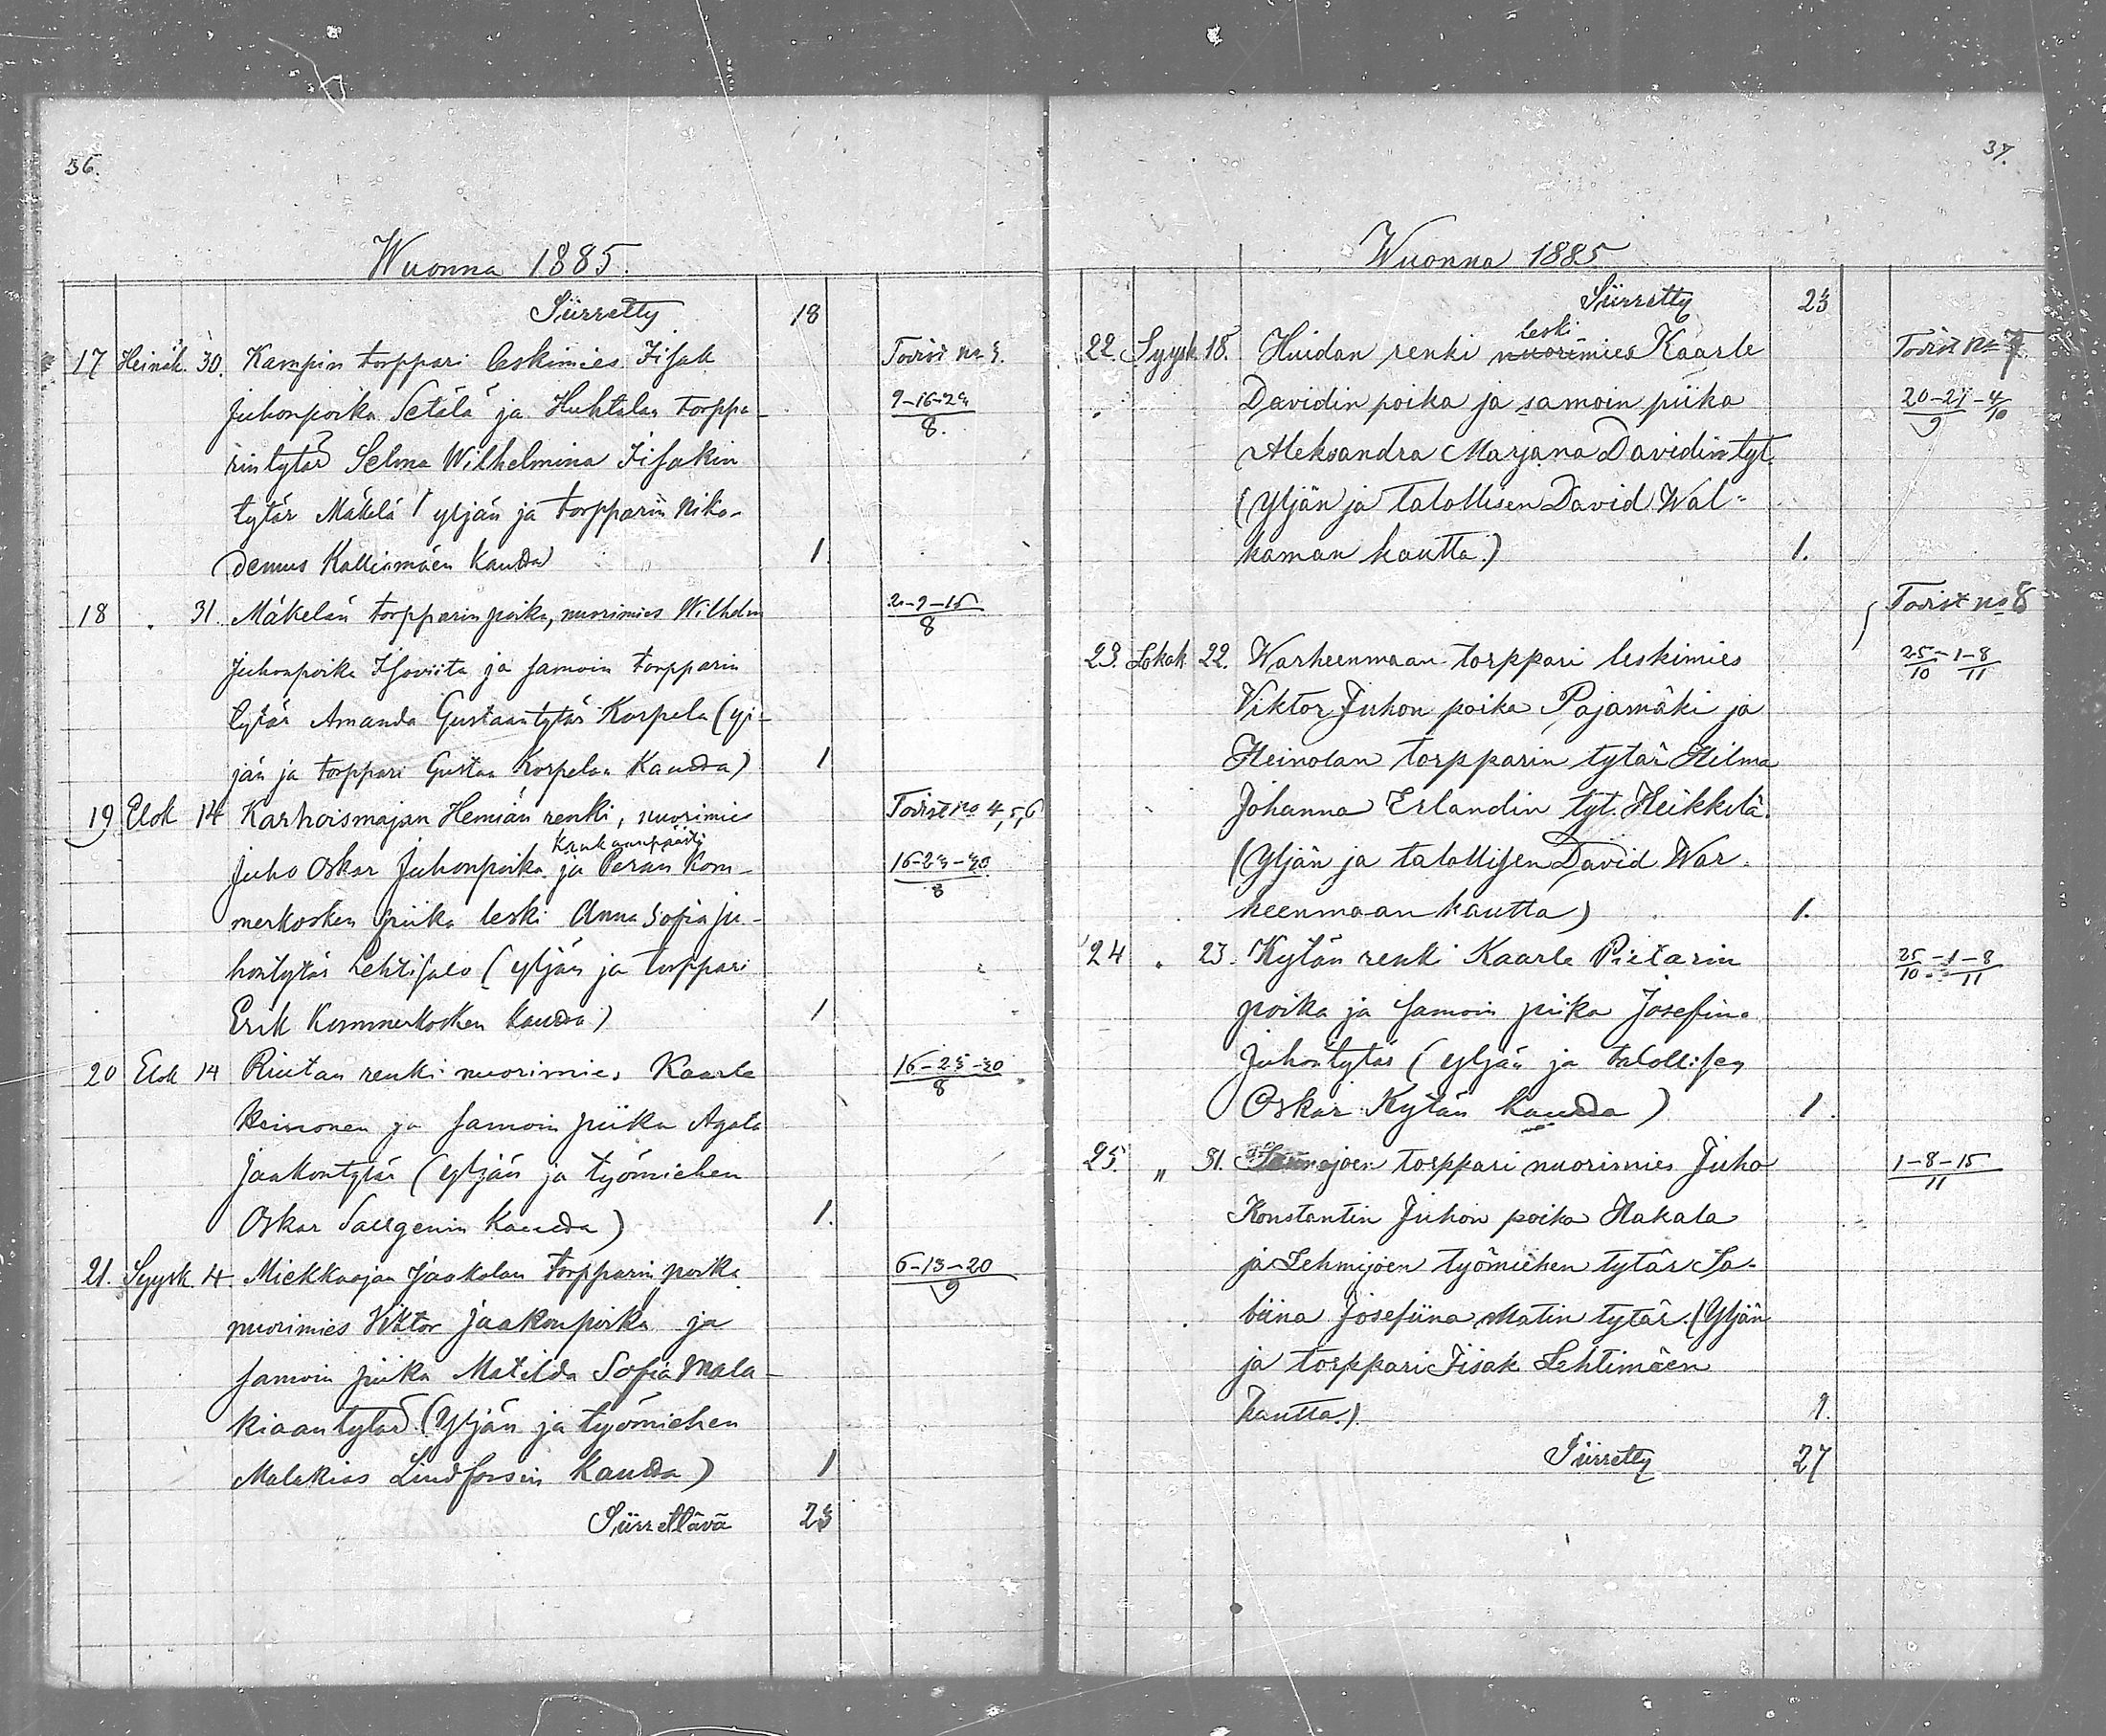 36.
Wuonna 1885.
Siirretty 18
17 Heinäk. 30. Kampin torppari leskimies Iisak Todist no 3.
Juhonpoika Setälä ja Huhtalan torppa- 9-16-23
rintytär Selma Wilhelmina Iisakin 8.
tytär Mäkelä / yljän ja torpparin Niko-
demus Kalliomäen kautta 1.
18 " 31. Mäkelän torpparin poika, nuorimies Wilhelm 2-9-15
8
Juhonpoika Isoviita ja samoin torpparin
tytär Amanda Gustaantytär Korpela (yl-
jän ja torppari Gustaa Korpelan kautta) 1
19 Elok 14 Karhoismajan Hemiän renki, nuorimies Todist no 4,5,6
Juho Oskar Juhonpoika ja Peran Kom- 16-23-30
8
merkosken piika leski Anna Sofia Ju-
hontytär Lehtisalo (yljän ja torppari
Erik Kommerkosken kautta) 1
20 Elok 14 Riutan renki nuorimies Kaarle 16-23-30
8
Keinonen ja samoin piika Agata
Jaakontytär (yljän ja työmiehen
Oskar Saurgenin kautta) 1.
21. Syysk. 4. Miekkaojan Jaakolan torpparin poika 6-13-20
9
nuorimies Viktor Jaakonpoika ja
samoin piika Matilda Sofia Mala-
kiaantytär (Yljän ja työmiehen
Malakias Lindforssin kautta) 1
Siirrettävä 23
37.
Wuonna 1885
Siirretty 23
leski
22. Syysk 18. Huidan renki nuorimies Kaarle Todist no 7
Davidin poika ja samoin piika 20-27-4
9 10
Aleksandra Marjana Davidin tyt.
(Yljän ja talollisen David Wal-
kaman kautta.) 1.
Todist no 8
23. Lokak. 22. Warheenmaan torppari leskimies 25-1-8
10 11
Viktor Juhon poika Pajamäki ja
Heinolan torpparin tytär Hilma
Johanna Erlandin tyt. Heikkilä.
(Yljän ja talollisen David War-
heenmaan kautta) 1.
24 " 23. Kytän renki Kaarle Pietarin 25-1-8
10 11
poika ja samoin piika Josefina
Juhontytär (yljän ja talollisen
Oskar Kytän kautta) 1.
25. " 31. torppari nuorimies Juho 1-8-15
11
Konstantin Juhon poika Hakala
ja Lehmijoen työmiehen tytär Sa-
biina Josefiina Matin tytär. (Yljän
ja torppari Iisak Lehtimäen
kautta.) 1.
Siirretty 27